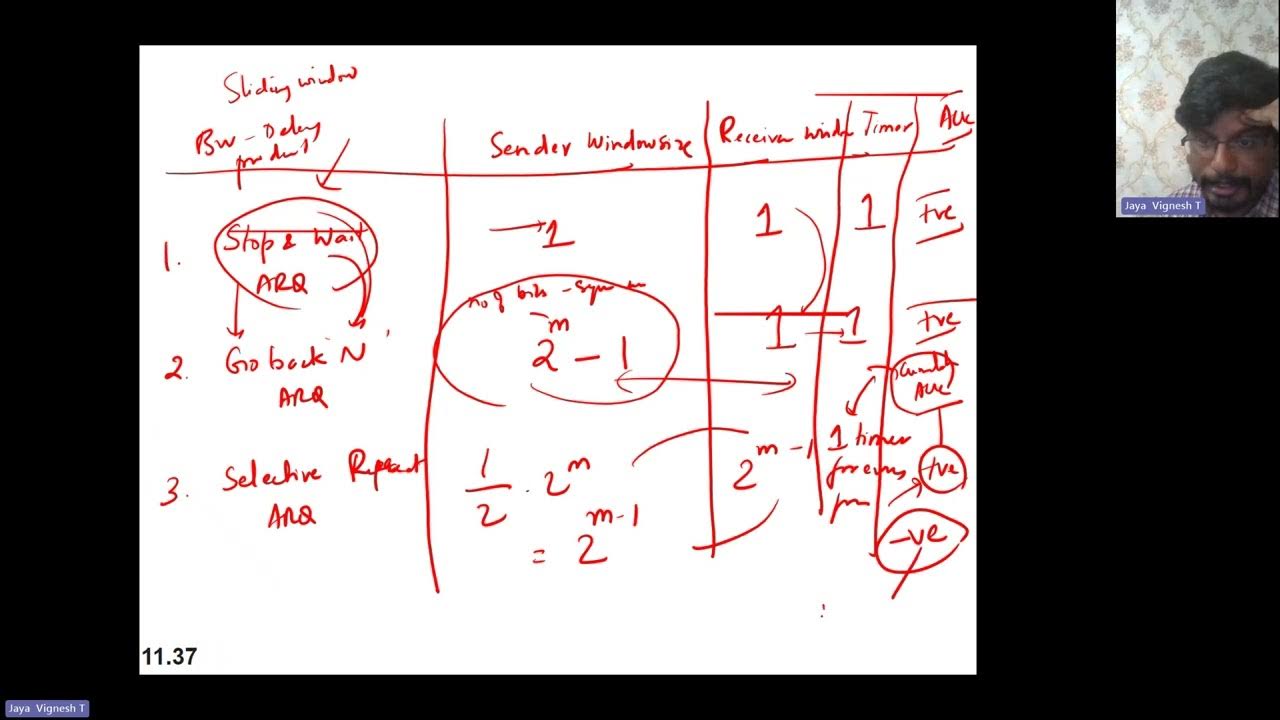 Sliding window
BW - Delay
product
Sender Windowsize
Receiver window
Timer
ACK
1. Stop & Wait
ARQ
→ 1
1
1
+ve
2. Go back N
ARQ
no of bits - sequ
2^m - 1
1 → 1
+ve
ACK
3. Selective Repeat
ARQ
1/2 . 2^m
= 2^m-1
2^m-1
1 timer
for every
+ve
-ve
11.37
Jaya Vignesh T
Jaya Vignesh T